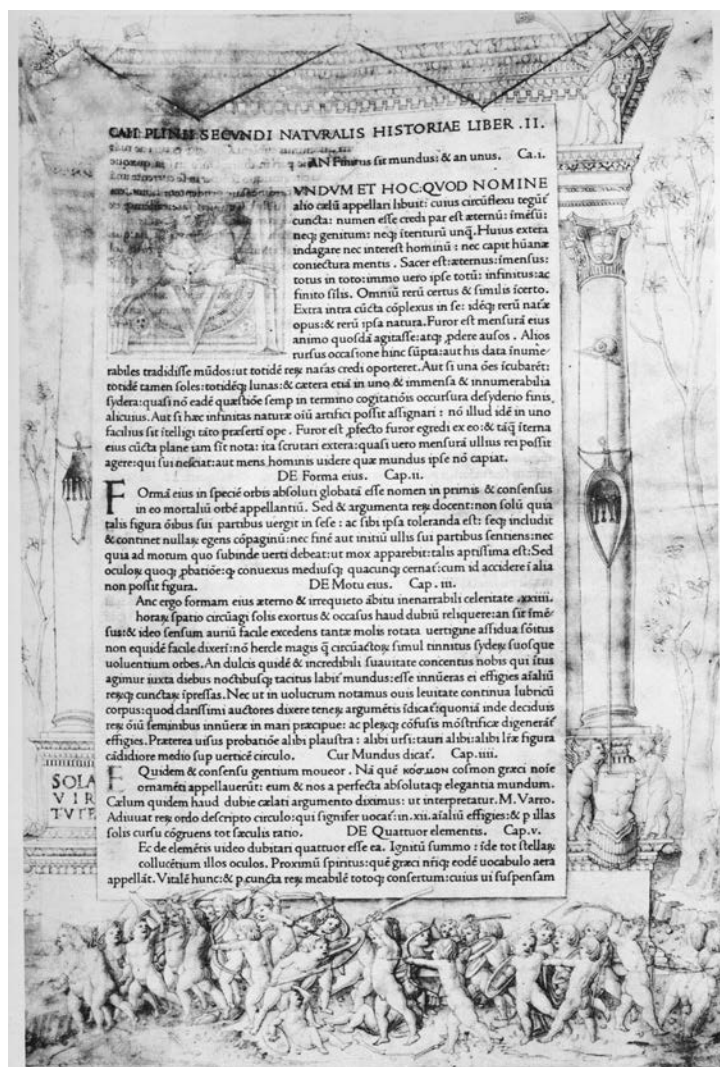 CAII PLINII SECVNDI NATVRALIS HISTORIAE LIBER .II.
AN Finitus sit mundus: & an unus. Ca.i.
VNDVM ET HOC. QVOD NOMINE
alio cælū appellari libuit: cuius circūflexu tegūt̄
cuncta: numen esse credi par est æternū: īmēsū:
neq; genitum: neq; īteriturū unq̄. Huius extera
indagare nec interest hominū: nec capit hūanæ
coniectura mentis. Sacer est: æternus: īmensus:
totus in toto: immo uero ipse totū: infinitus: ac
finito silis. Omniū rerū certus & similis īcerto.
Extra intra cūcta cōplexus in se: idēq; rerū natæ
opus: & rerū ipsa natura. Furor est mensurā eius
animo quosdā agitasse: atq; ꝓdere ausos. Alios
rursus occasione hinc sūpta: aut his data īnume
rabiles tradidisse mūdos: ut totidē reꝝ naťas credi oporteret. Aut si una ōes īcubarēt:
totidē tamen soles: totidēq; lunas: & cætera etiā in uno & immensa & innumerabilia
sydera: quasi nō eadē quæstiōe semp in termino cogitatiōis occursura desyderio finis
alicuius. Aut si hæc infinitas naturæ oiū artifici possit assignari: nō illud idē in uno
facilius sit ītelligi tāto præserti ope. Furor est ꝓfecto furor egredi ex eo: & tāq̄ īterna
eius cūcta plane iam sīt nota: ita scrutari extera: quasi uero mensurā ullius rei possit
agere: qui sui nesciat: aut mens hominis uidere quæ mundus ipse nō capiat.
DE Forma eius. Cap.ii.
FOrmā eius in speciē orbis absoluti globatā esse nomen in primis & consensus
in eo mortaliū orbē appellantiū. Sed & argumenta reꝝ docent: non solū quia
talis figura ōibus sui partibus uergit in sese: ac sibi ipsa toleranda est: seq; includit
& continet nullaꝝ egens cōpaginū: nec finē aut initiū ullis sui partibus sentiens: nec
quia ad motum quo subinde uerti debeat: ut mox apparebit: talis aptissima est: Sed
oculoꝝ quoq; ꝓbatiōe: q; conuexus mediusq; quacunq; cernať: cum id accidere ī alia
non possit figura. DE Motu eius. Cap. iii.
Anc ergo formam eius æterno & irrequieto ābitu inenarrabili celeritate .xxiiii.
horaꝝ spatio circūagi solis exortus & occasus haud dubiū reliquere: an sit īmē
sus: & ideo sensum auriū facile excedens tantæ molis rotata uertigine assidua sōitus
non equidē facile dixerī: nō hercle magis q̄ circūactoꝝ simul tinnitus sydeꝝ suosque
uoluentium orbes. An dulcis quidē & incredibili suauitate concentus nobis qui ītus
agimur iuxta diebus noctibusq; tacitus labiť mundus: esse innūeras ei effigies aīaliū
reꝝq; cunctaꝝ īpressas. Nec ut in uolucrum notamus ouis leuitate continua lubricū
corpus: quod clarissimi auctores dixere teneꝝ argumētis īdicať: quoniā inde deciduis
reꝝ ōiū seminibus innūeræ in mari præcipue: ac pleꝝq; cōfusis mōstrificæ digenerāť
effigies. Præterea uisus probatiōe alibi plaustra: alibi ursi: tauri alibi: alibi lræ figura
cādidiore medio sup uerticē circulo. Cur Mundus dicať. Cap.iiii.
EQuidem & consensu gentium moueor. Nā quē κόσμον cosmon græci noīe
ornamēti appellauerūt: eum & nos a perfecta absolutaq; elegantia mundum.
Cælum quidem haud dubie cælati argumento diximus: ut interpretatur. M. Varro.
Adiuuat reꝝ ordo descripto circulo: qui signifer uocať: in .xii. aīaliū effigies: & p illas
solis cursu cōgruens tot sæculis ratio. DE Quattuor elementis. Cap.v.
Ec de elemētis uideo dubitari quattuor esse ea. Ignitū summo: īde tot stellaꝝ
collucētium illos oculos. Proximū spiritus: quē græci nr̄iq; eodē uocabulo aera
appellāt. Vitalē hunc: & p cuncta reꝝ meabilē totoq; consertum: cuius ui suspensam
SOLA
VIR
TVTE